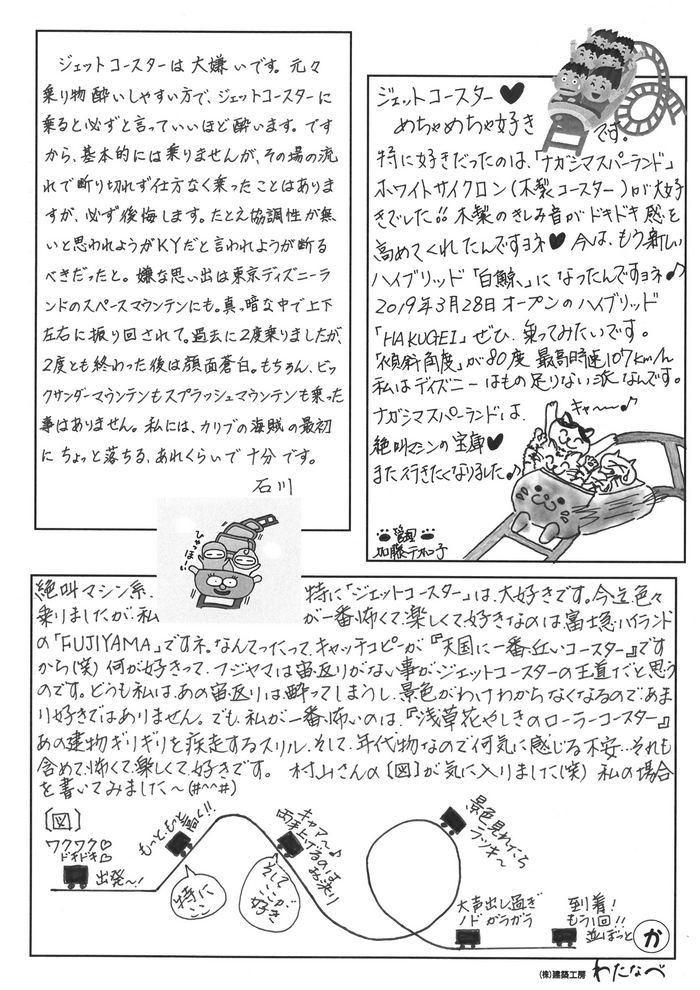 ジェットコースターは大嫌いです。元々
乗り物酔いしやすい方で、ジェットコースターに
乗ると必ずと言っていいほど酔います。です
から、基本的には乗りませんが、その場の流
れで断り切れず仕方なく乗ったことはありま
すが、必ず後悔します。たとえ協調性が無
いと思われようがKYだと言われようが断る
べきだったと。嫌な思い出は東京ディズニーラ
ンドのスペースマウンテンにも。真っ暗な中で上下
左右に振り回されて。過去に2度乗りましたが、
2度とも終わった後は顔面蒼白。もちろん、ビッ
クサンダーマウンテンもスプラッシュマウンテンも乗った
事はありません。私には、カリブの海賊の最初
にちょっと落ちる、あれくらいで十分です。
石川
ジェットコースター♥
めちゃめちゃ好き
です。
特に好きだったのは、「ナガシマスパーランド」
ホワイトサイクロン(木製コースター)が大好
きでした!! 木製のきしみ音がドキドキ感を
高めてくれたんですヨネ♥今は、もう新しい
ハイブリッド「白鯨」になったんですヨネ♪
2019年3月28日オープンのハイブリッド
「HAKUGEI」ぜひ、乗ってみたいです。
「傾斜角度」が80度 最高時速107km/h
私はディズニーはもの足りない派なんです。
ナガシマスパーランドは、
絶叫マシンの宝庫♥
また行きたくなりました♪
キャ〜〜♪
管理
加藤
絶叫マシン系、特に「ジェットコースター」は、大好きです。今迄色々
乗りましたが、私が一番怖くて、楽しくて、好きなのは富士急ハイランド
の「FUJIYAMA」ですネ。なんてったって、キャッチコピーが『天国に一番近いコースター』です
から(笑) 何が好きって、フジヤマは宙返りがない事がジェットコースターの王道だと思う
のです。どうも私は、あの宙返りは酔ってしまうし、景色がわけわからなくなるので、あま
り好きではありません。でも私が一番怖いのは、『浅草花やしきのローラーコースター』
あの建物ギリギリを疾走するスリル、そして、年代物なので何気に感じる不安…それも
含めて、怖くて、楽しくて、好きです。 村山さんの〔図〕が気に入りました(笑) 私の場合
を書いてみました〜(#^^#)
〔図〕
ワクワク♡
ドキドキ♡
出発〜!
もっと、もっと高く!!
特に
ここ
キャマ〜♪
両手上げるのは
お決り
そして
ここが
好き
景色見れたら
ラッキー
大声出し過ぎ
ノドガラガラ
到着!
もう1回!!
並ぼっと
か
(株)建築工房 わたなべ